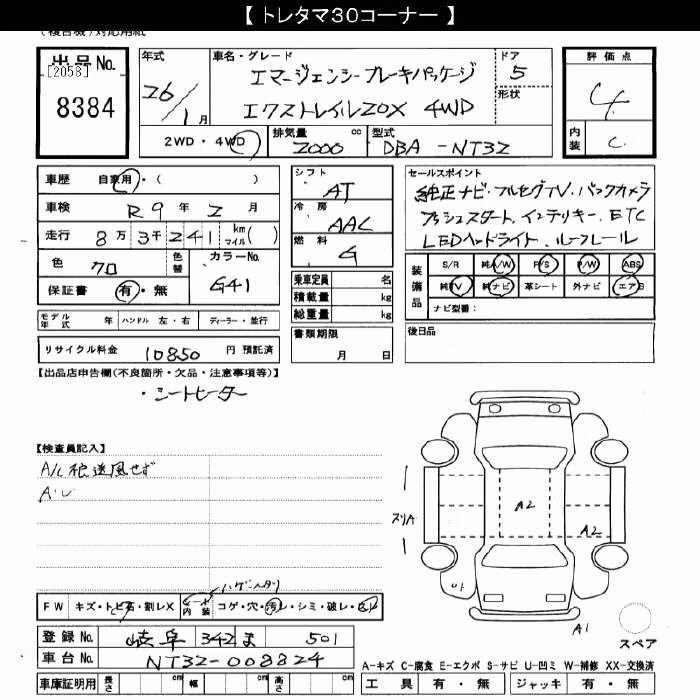 【 トレタマ30コーナー 】
(複合機)対応用紙
出品No. [2058] 8384
年式 26/1月
車名・グレード エマージェンシーブレーキパッケージ
エクストレイル20X 4WD
ドア 5
形状
2WD・4WD
排気量 2000 cc
型式 DBA-NT32
評価点 4
内装 C
車歴 自家用・( )
車検 R9年2月
走行 8万3千241 km マイル( )
色 クロ 色替
カラーNo. G41
保証書 有・無
モデル年式 年 ハンドル 左・右 ディーラー・並行
リサイクル料金 10850 円 預託済
シフト AT
冷房 AAC
燃料 G
乗車定員 名
積載量 kg
総重量 kg
書類期限 月 日
セールスポイント
純正ナビ・フルセグTV、バックカメラ
プッシュスタート、インテリキー、ETC
LEDヘッドライト、ルーフレール
装備品 S/R 純A/W P/S P/W ABS
純TV 純ナビ 革シート 外ナビ エアB
ナビ型番:
後日品
【出品店申告欄(不良箇所・欠品・注意事項等)】
・シートヒーター
【検査員記入】
A/C 送風せず
A・U
スリA
A2
A2
U1
A1
スペア
FW キズ・トビ石・割レX
シート 内装 コゲ・穴・汚レ・シミ・破レ・
登録No. 岐阜 342 ま 501
車台No. NT32-008824
車庫証明用 長さ cm 幅 cm 高さ cm
A-キズ C-腐食 E-エクボ S-サビ U-凹ミ W-補修 XX-交換済
工具 有・無 ジャッキ 有・無